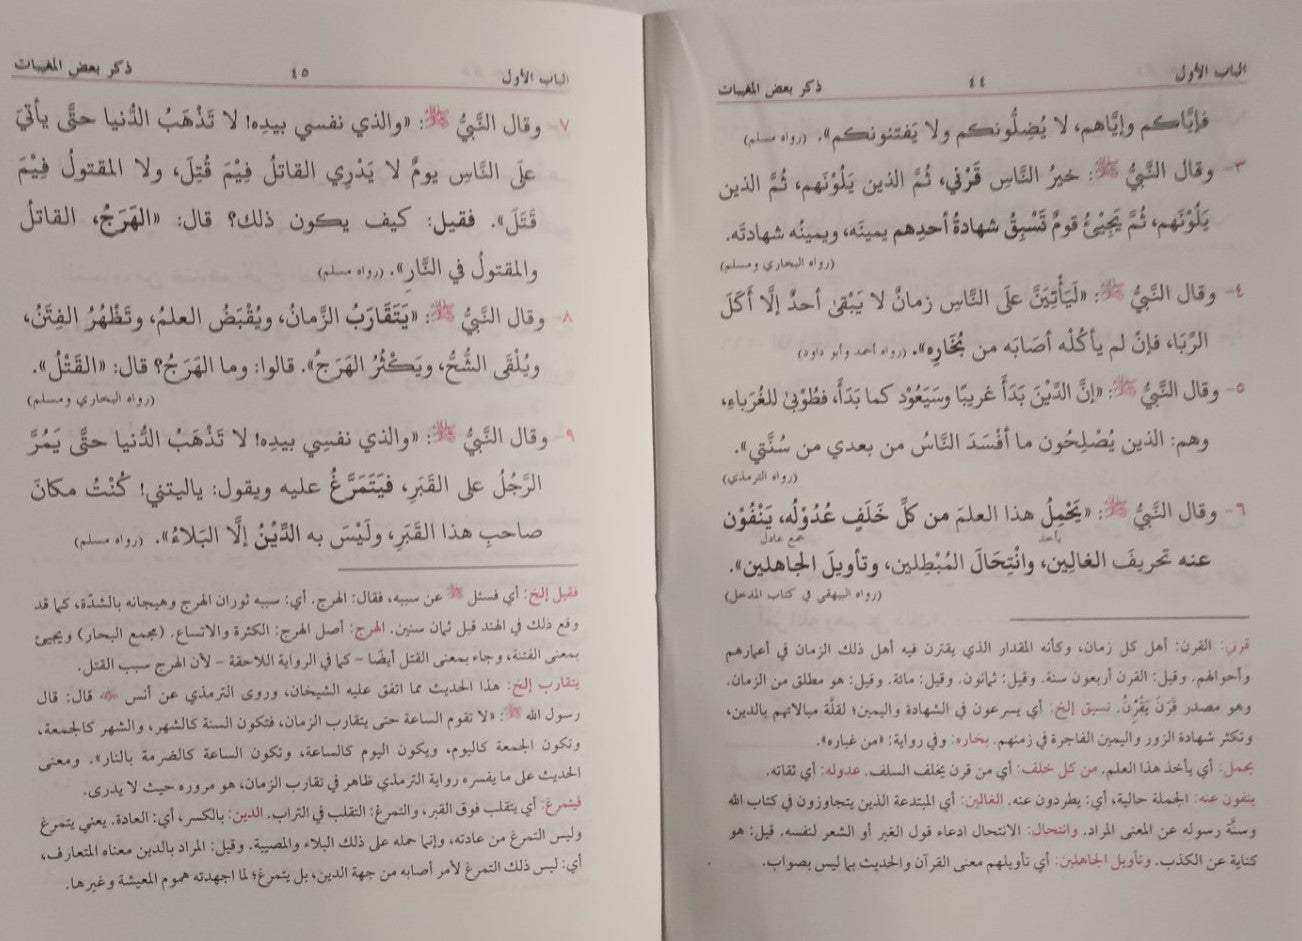 الباب الأول ٤٤ ذكر بعض المغيبات
فإيَّاكم وإيَّاهم، لا يُضِلُّونكم ولا يَفتنونكم». (رواه مسلم)
٣- وقال النَّبيُّ ﷺ: خيرُ النَّاسِ قَرْني، ثُمَّ الذين يَلُوْنَهم، ثُمَّ الذين
يَلُوْنَهم، ثُمَّ يَجِيْئُ قومٌ تَسْبِقُ شهادةُ أحدِهم يمينَه، ويمينُه شهادتَه.
(رواه البخاري ومسلم)
٤- وقال النَّبيُّ ﷺ: «لَيَأْتِيَنَّ علَى النَّاسِ زمانٌ لا يَبْقىٰ أحدٌ إلَّا أَكَلَ
الرِّبَا، فإنْ لم يأكُلْه أصَابَه من بُخَارِه». (رواه أحمد وأبو داود)
٥- وقال النَّبيُّ ﷺ: «إنَّ الدِّيْنَ بَدَأَ غريبًا وسَيَعُوْد كما بَدَأَ، فطُوْبىٰ للغُرَباءِ،
وهم: الذين يُصْلِحُون ما أفْسَدَ النَّاسُ من بعدي من سُنَّتي».
(رواه الترمذي)
٦- وقال النَّبيُّ ﷺ: «يَحْمِلُ هذا العلمَ من كلِّ خَلَفٍ عُدُوْلُه، يَنْفُوْن
يأخذ جمع عادل
عنه تحريفَ الغالِين، وانْتِحَالَ المُبْطِلين، وتأويلَ الجاهلين».
(رواه البيهقي في كتاب المدخل)
قرني: القرن: أهل كل زمان، وكأنه المقدار الذي يقترن فيه أهل ذلك الزمان في أعمارهم
وأحوالهم. وقيل: القرن أربعون سنة. وقيل: ثمانون. وقيل: مائة. وقيل: هو مطلق من الزمان.
وهو مصدر قَرَنَ يَقْرِنُ. تسبق إلخ: أي يسرعون في الشهادة واليمين؛ لقلَّة مبالاتهم بالدين،
وتكثر شهادة الزور واليمين الفاجرة في زمنهم. بخاره: وفي رواية: «من غباره».
يحمل: أي يأخذ هذا العلم. من كل خلف: أي من قرن يخلف السلف. عدوله: أي ثقاته.
ينفون عنه: الجملة حالية، أي: يطردون عنه. الغالين: أي المبتدعة الذين يتجاوزون في كتاب الله
وسنَّة رسوله عن المعنى المراد. وانتحال: الانتحال ادعاء قول الغير أو الشعر لنفسه. قيل: هو
كناية عن الكذب. وتأويل الجاهلين: أي تأويلهم معنى القرآن والحديث بما ليس بصواب.
الباب الأول ٤٥ ذكر بعض المغيبات
٧- وقال النَّبيُّ ﷺ: «والذي نفسي بيدِه! لا تَذْهَبُ الدُّنيا حتَّى يأتيَ
علَى النَّاسِ يومٌ لا يَدْرِي القاتلُ فِيْمَ قُتِلَ، ولا المقتولُ فِيْمَ
قَتَلَ». فقيل: كيف يكون ذلك؟ قال: «الهَرَجُ، القاتلُ
والمقتولُ في النَّارِ». (رواه مسلم)
٨- وقال النَّبيُّ ﷺ: «يَتَقَارَبُ الزَّمانُ، ويُقْبَضُ العلمُ، وتَظْهَرُ الفِتَنُ،
ويُلْقَى الشُّحُّ، ويَكْثُرُ الهَرَجُ». قالوا: وما الهَرَجُ؟ قال: «القَتْلُ».
(رواه البخاري ومسلم)
٩- وقال النَّبيُّ ﷺ: «والذي نفسِي بيدِه! لا تَذْهَبُ الدُّنيا حتَّى يَمُرَّ
الرَّجُلُ على القَبَرِ، فيَتَمَرَّغُ عليه ويقول: ياليتني! كُنْتُ مكانَ
صاحبِ هذا القَبَرِ، ولَيْسَ به الدِّيْنُ إلَّا البَلَاءُ». (رواه مسلم)
فقيل إلخ: أي فسئل ﷺ عن سببه، فقال: الهرج. أي: سببه ثوران الهرج وهيجانه بالشدّة، كما قد
وقع ذلك في الهند قبل ثمان سنين. الهرج: أصل الهرج: الكثرة والاتساع. (مجمع البحار) ويجيئ
بمعنى الفتنة، وجاء بمعنى القتل أيضًا – كما في الرواية اللاحقة – لأن الهرج سبب القتل.
يتقارب إلخ: هذا الحديث مما اتفق عليه الشيخان، وروى الترمذي عن أنس قال: قال
رسول الله ﷺ: «لا تقوم الساعة حتى يتقارب الزمان، فتكون السنة كالشهر، والشهر كالجمعة،
وتكون الجمعة كاليوم، ويكون اليوم كالساعة، وتكون الساعة كالضرمة بالنار». ومعنى
الحديث على ما يفسره رواية الترمذي ظاهر في تقارب الزمان، هو مروره حيث لا يدرى.
فيتمرغ: أي يتقلب فوق القبر، والتمرغ: التقلب في التراب. الدين: بالكسر، أي: العادة. يعني يتمرغ
وليس التمرغ من عادته، وإنما حمله على ذلك البلاء والمصيبة. وقيل: المراد بالدين معناه المتعارف،
أي: ليس ذلك التمرغ لأمر أصابه من جهة الدين، بل يتمرغ؛ لما اجهدته هموم المعيشة وغيرها.